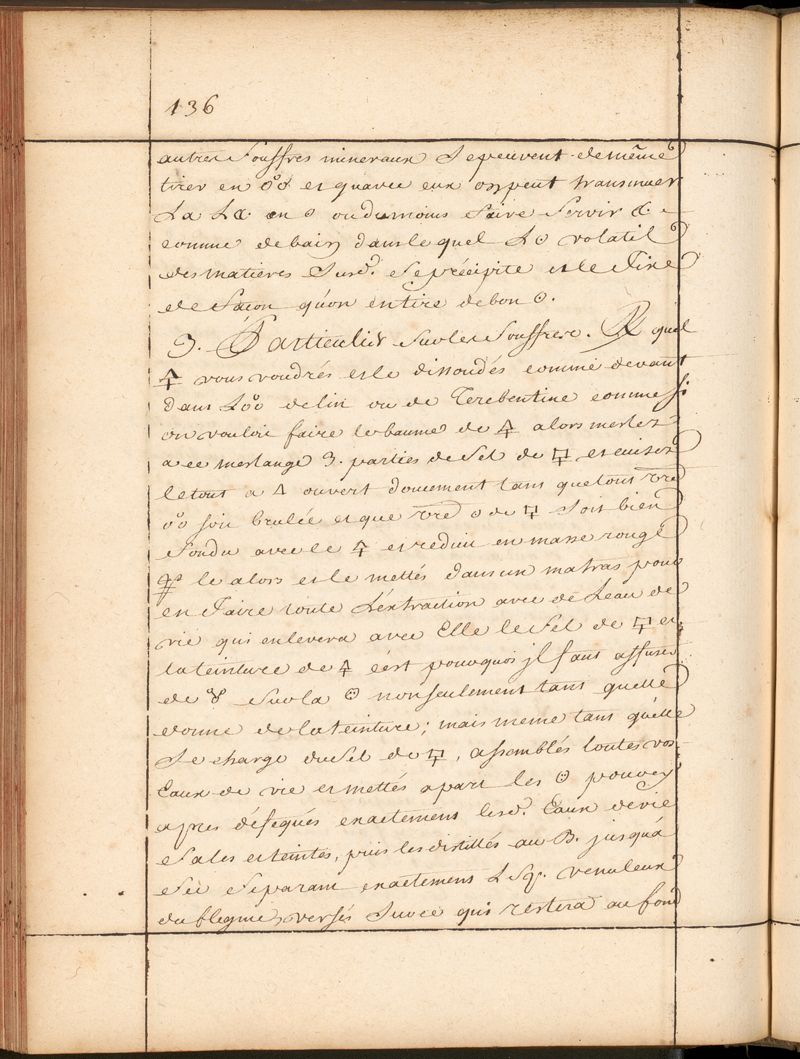 136
autres Souffres mineraux Se peuvent de même
tirer en o°o et qu'avec eux on peut transmuer
La L☾ en ☉ ou du moins faire Servir ☾
comme de bain dans le quel L☉ volatil
des matieres Susd. Se précipite et le Fixe
de Façon qu'on en tire de bon ☉.
3. Particulier Sur les Souffres. ℞ quel
🜍 vous voudrés et le dissoudés comme devant
dans Lo°o de lin ou de Terebentine comme Si
on vouloit faire le baume de 🜍 alors meslez
a ce meslange 3. parties de Sel de 🜿 et cuisez
le tout a 🜂 ouvert doucement tant que tout vre
o°o soit brulée et que vre de 🜿 Soit bien
Fondu avec le 🜍 et reduit en masse rouge
le alors et le mettés dans un matras pour
en Faire toute L'extraction avec de Leau de
vie qui enlevera avec Elle le Sel de 🜿 et
la teinture de 🜍 c'est pourquoi il faut affuser
de Sur la non Seulement tant quelle
donne de la teinture; mais meme tant qu'elle
Se charge du Sel de 🜿, assemblés toutes vos
Eaux de vie et mettés apart les pouvez
apres déféqués exactement lesd. Eaux de vie
Salés et teintes, puis les distillés au B. jusqu'á
Sec Separant exactement L Sp.
du flegme, versés Sur ce qui restera au fond